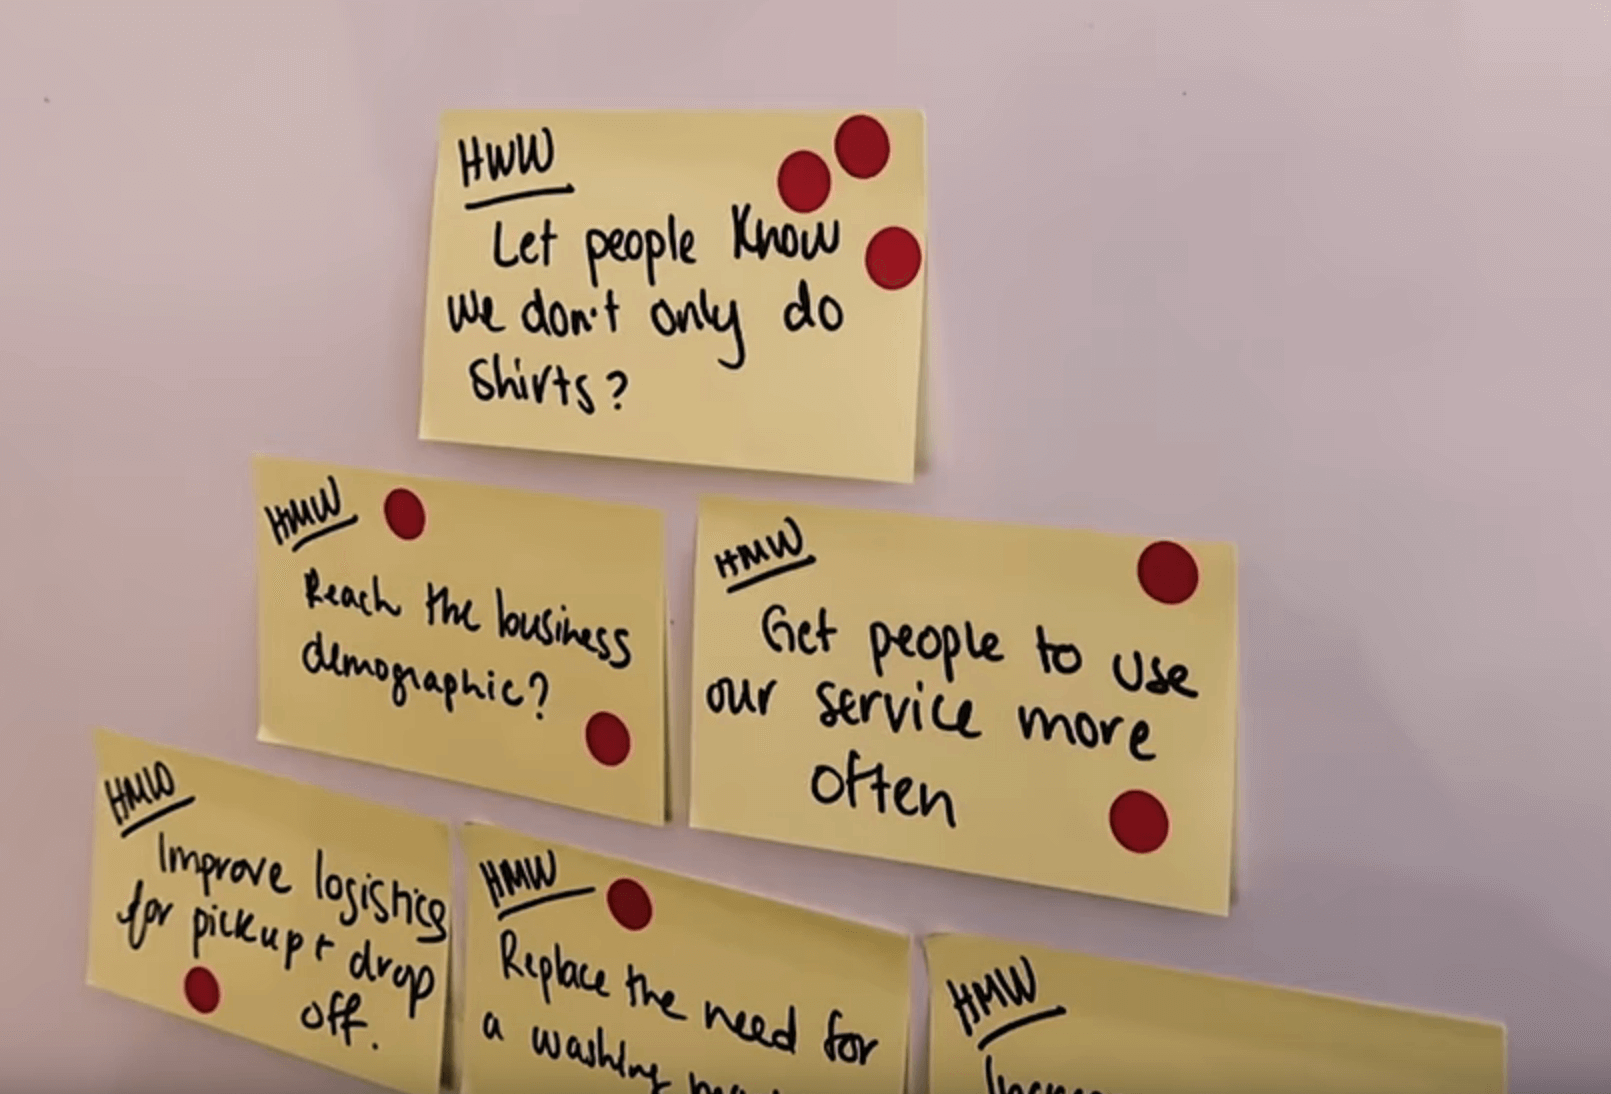 HWW
Let people know
we don't only do
shirts?
HMW
Reach the business
demographic?
HMW
Get people to use
our service more
often
HMW
Improve logistics
for pickup + drop
off.
HMW
Replace the need for
a washing
HMW